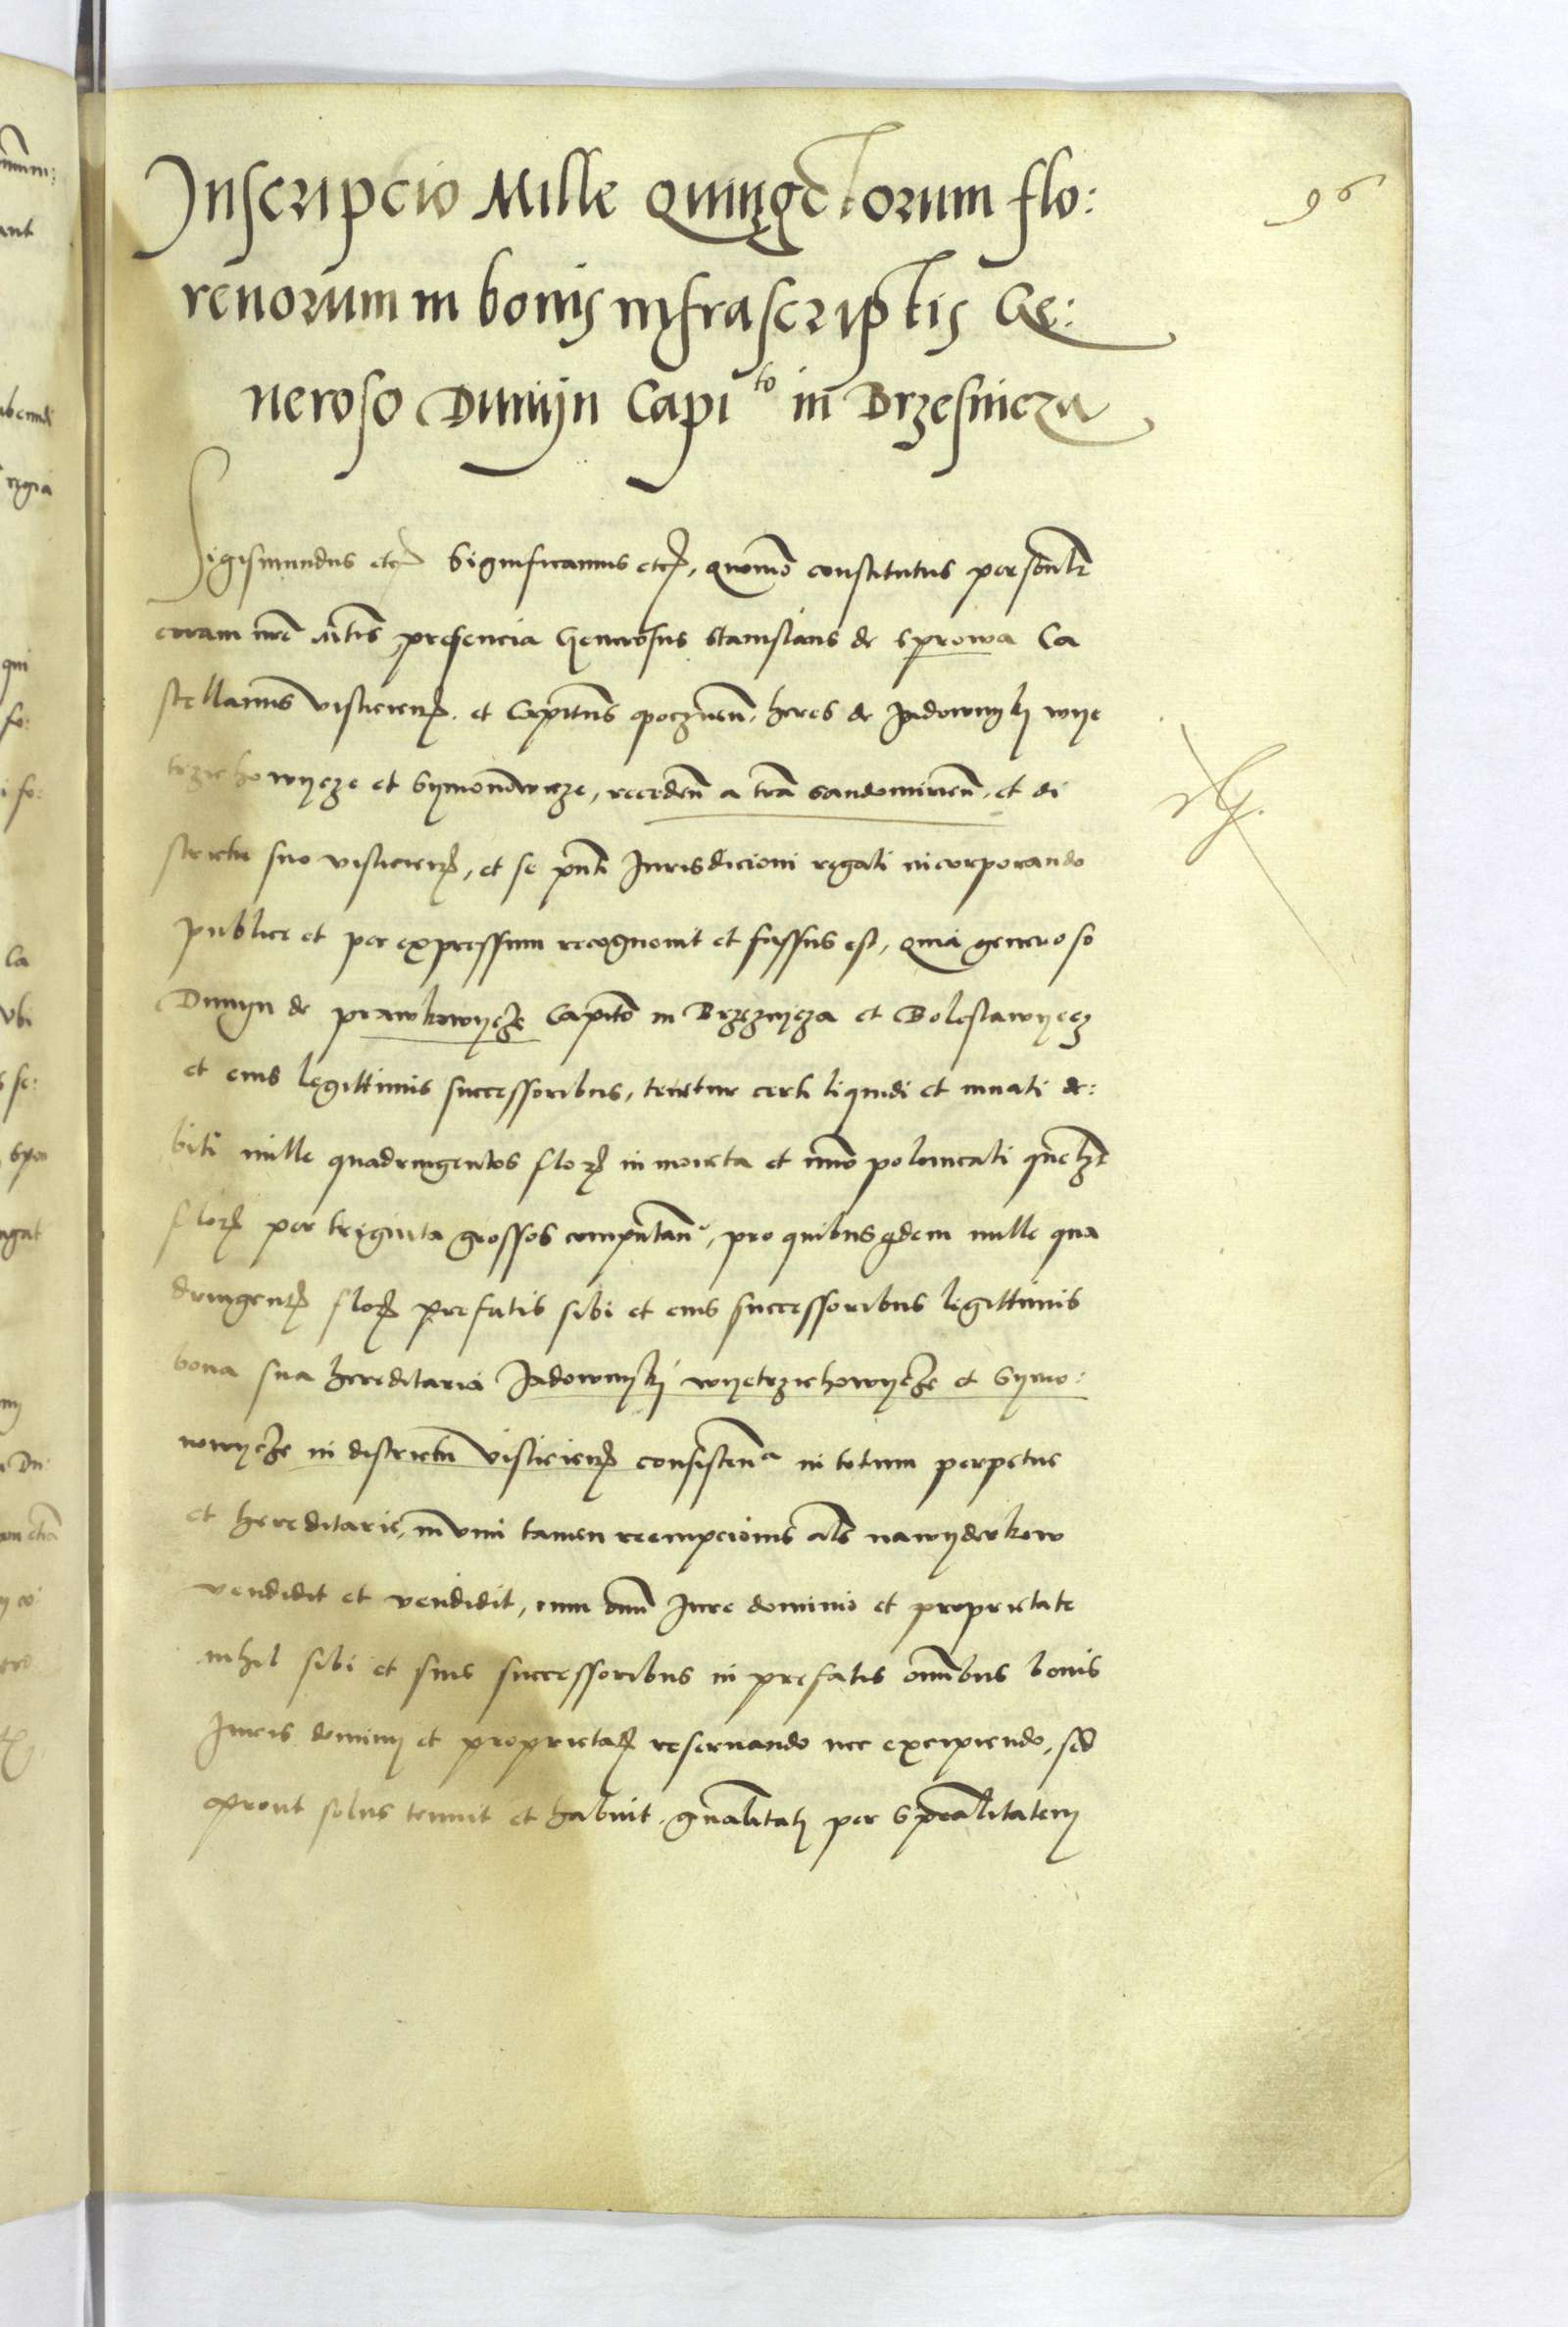 96
Inscripcio Mille Quingetorum flo:
renorum in bonis infrascriptis Ge:
neroso Dunijn Capito in Brzesnicza
Sigismundus etc Significamus etc, quomo constitutus personlr
coram nre mtis presencia Generosus Stanislaus de Sprowa Ca
stellanus Visliciens. et Capitus heres de Jadownyki wye
trzichowycze et Symonowicze, receden a tra Sandomirien. et di
strictu suo Visliciens, et se pnti Jurisdicioni regali incorporando
publice et per expressum recognovit et fassus est, quia generoso
Dunyn de prawkowycze Capito in Brzeznycza et Boleslawyecz
et eius legittimis successoribus, tenetur certi liquidi et debiti
biti mille quadringentos flor in moneta et nuo polonicali qmlzt
flor per triginta grossos computan, pro quibusqdem mille qua
dringent flor prefatis sibi et eius successoribus legittimis
bona sua hereditaria Jadownyky wyetrzichowycze et Symo:
nowycze in districtu Visliciens consisten in totum perpetue
et hereditarie, tamen reempcionis als nawyderkow
vendidit et vendidit, cum omi Jure dominio et proprietate
nihil sibi et suis successoribus in prefatis omibus bonis
Juris dominij et proprietat reservando nec excipiendo, sed
prout solus tenuit et habuit. gnalitati per specalitatem